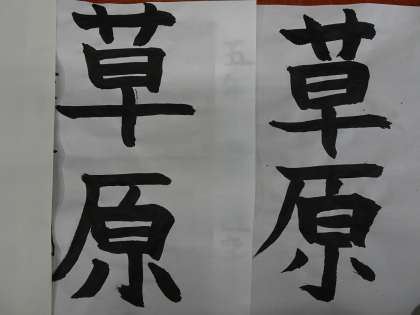 草原
草原